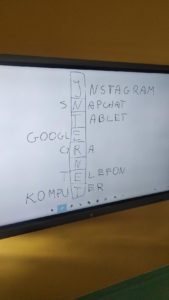 INSTAGRAM
SNAPCHAT
TABLET
GOOGLE
GRA
N
TELEFON
KOMPUTER